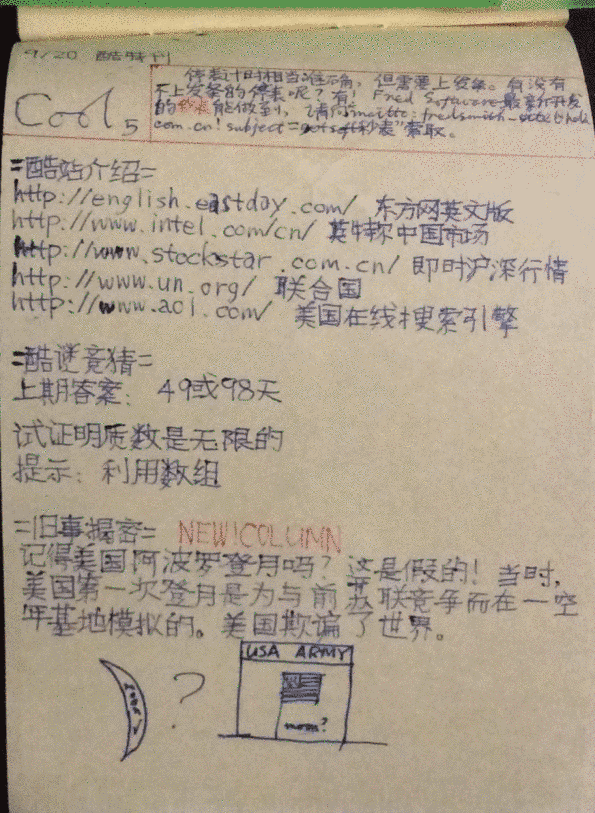 9/20 酷特刊
Cool 5
停表计时相当准确，但需要上发条。有没有
不上发条的停表呢？有！Fred Software最新开发
的秒表能做到，请向mailto:fredsmith
com.cn!subject=getsoft秒表"索取。
=酷站介绍=
http://english.eastday.com/ 东方网英文版
http://www.intel.com/cn/ 英特尔中国市场
http://www.stockstar.com.cn/ 即时沪深行情
http://www.un.org/ 联合国
http://www.aol.com/ 美国在线搜索引擎
=酷谜竞猜=
上期答案：49或98天
试证明质数是无限的
提示：利用数组
=旧事揭密= NEW!COLUMN
记得美国阿波罗登月吗？这是假的！当时，
美国第一次登月是为与前苏联竞争而在一空
军基地模拟的。美国欺骗了世界。
?
USA ARMY
moon?